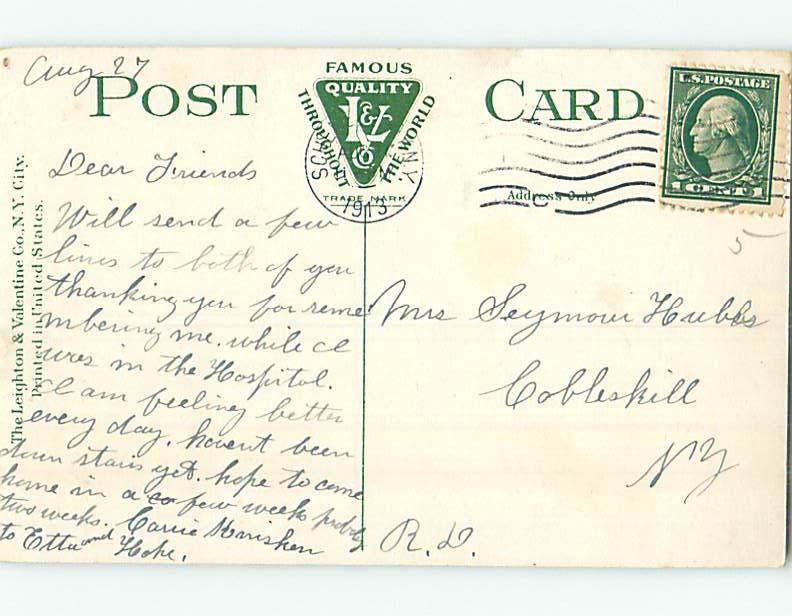 Aug 27
POST CARD
FAMOUS
QUALITY
L&V
Co
THROUGHOUT THE WORLD
TRADE MARK
1913
NY
U.S. POSTAGE
1 CENT 1
Address Only
5
The Leighton & Valentine Co., N.Y. City.
Printed in United States.
Dear Friends
Will send a few
lines to both of you
thanking you for reme
mbering me. while I
wres in the Hospital.
I am feeling better
every day. havent been
down stairs yet. hope to come
home in a few weeks probably
two weeks. Carrie
to Etta and Hope.
Mrs Seymour Hubbs
Cobleskill
NY
R.D.